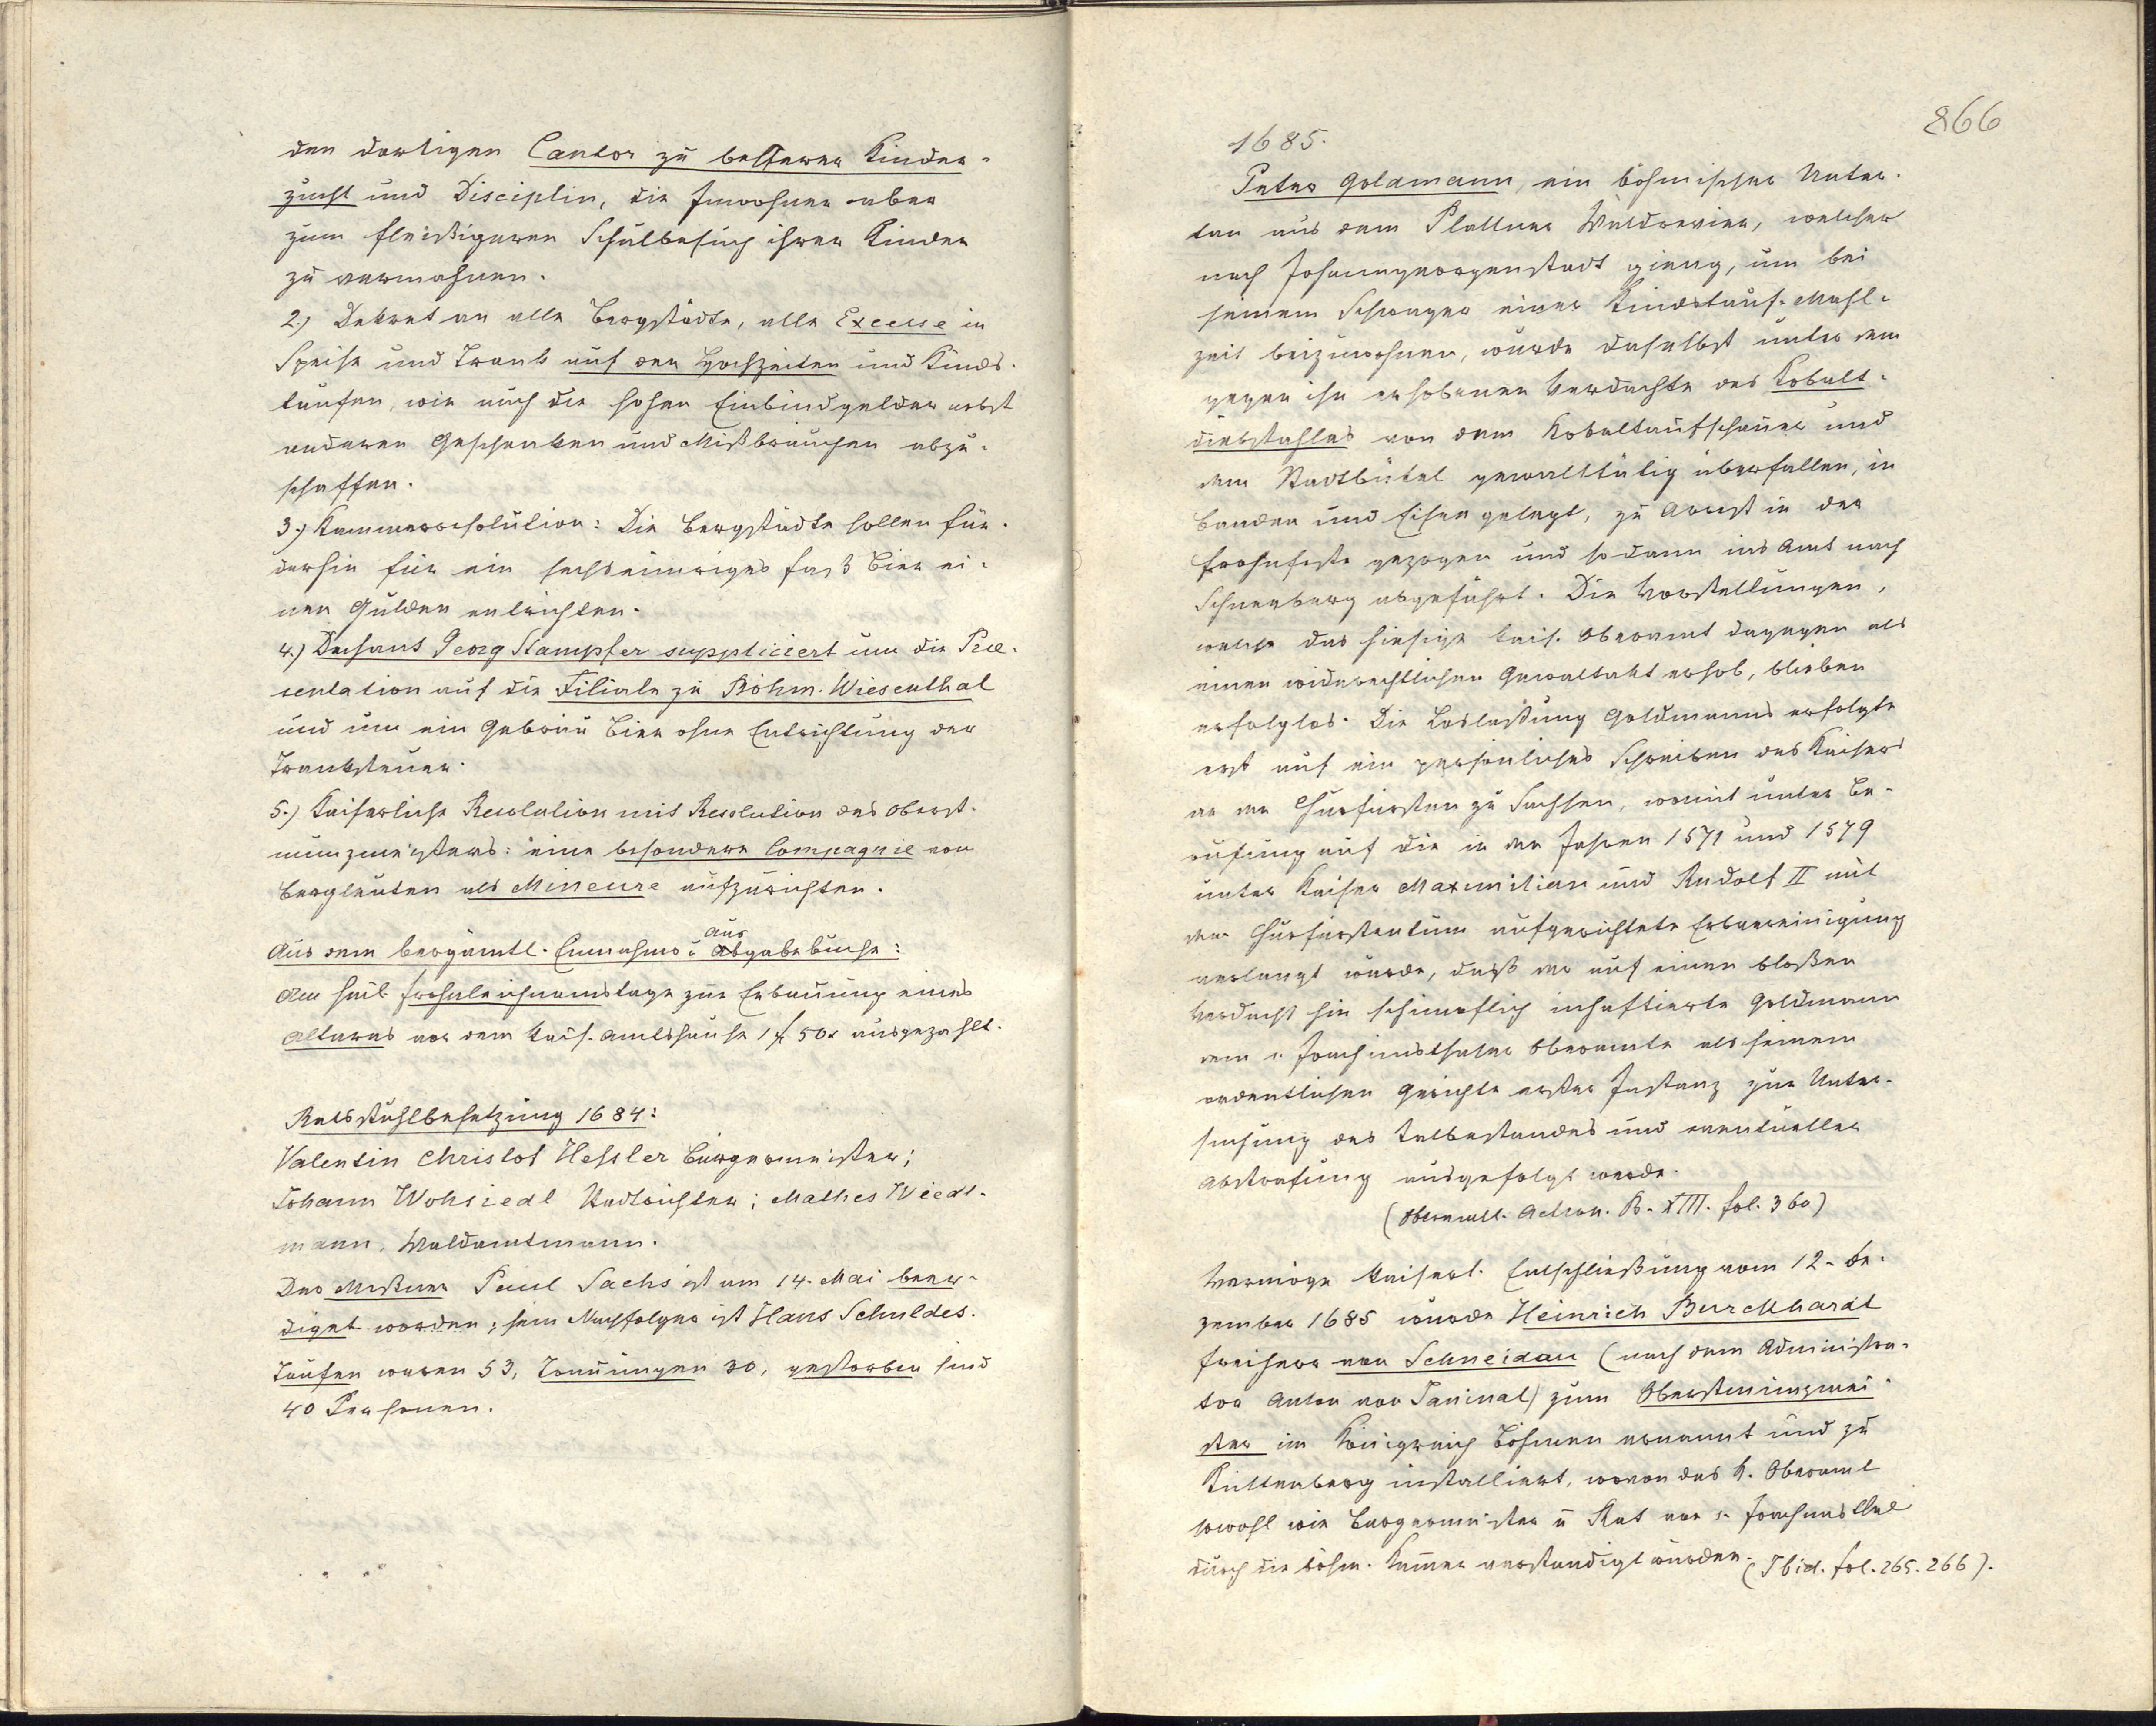 den dortigen Cantor zu besserer Kinder-
zucht und Disciplin, die Inwohner aber
zum fleißigeren Schulbesuch ihrer Kinder
zu vermahnen.
2.) Dekret an alle Bergstädte, alle Excesse in
Speise und Trank auf den Hochzeiten und Kinds-
taufen, wie auch die hohen Einbindgelder nebst
anderen Geschenken und Mißbräuchen abzu-
schaffen.
3.) Kammerresolution: Die Bergstädte sollen für-
derhin für ein sechseimriges Faß Bier ei-
nen Gulden entrichten.
4.) Dechant Georg Stampfer suppliciert um die Prae-
sentation auf die Filiale zu Böhm. Wiesenthal
und um ein Gebräu Bier ohne Entrichtung der
Tranksteuer.
5.) Kaiserliche Resolution mit Resolution des Oberst-
münzmeisters: eine besondere Compagnie von
Bergleuten als Mineure aufzurichten.
aus
Aus dem bergämtl. Einnahms- u. Abgabebuche:
Am heil. Frohnleichnamstage zur Erbauung eines
Altares vor dem kais. Amtshause 1 f 50 x ausgezahlt.
Ratsstuhlbesetzung 1684:
Valentin Christof Hessler Bürgermeister;
Johann Wohsiedl Stadtrichter; Mathes Wiedt-
mann, Waldamtmann.
Der Meßner Paul Sachs ist am 14. Mai beer-
diget worden; sein Nachfolger ist Hans Schuldes.
Taufen waren 53, Trauungen 20, gestorben sind
40 Personen.
866
1685.
Peter Goldmann, ein böhmischer Unter-
tan aus dem Plattner Waldrevier, welcher
nach Johanngeorgenstadt gieng, um bei
seinem Schwager einer Kindstauf-Mahl-
zeit beizuwohnen, wurde daselbst unter dem
gegen ihn erhobenen Verdachte des Kobalt-
diebstahles von dem Kobaltaufschauer und
dem Stadtbüttel gewalttätig überfallen, in
Banden und Eisen gelegt, zu Arrest in der
Frohnfeste gezogen und sodann ins Amt nach
Schneeberg abgeführt. Die Vorstellungen,
welche das hiesige kais. Oberamt dagegen als
einen widerrechtlichen Gewaltakt erhob, blieben
erfolglos. Die Loslassung Goldmanns erfolgte
erst auf ein persönliches Schreiben des Kaisers
an den Churfürsten zu Sachsen, womit unter Be-
rufung auf die in den Jahren 1571 und 1579
unter Kaiser Maxmilian und Rudolf II mit
dem Churfürstentum aufgerichtete Erbvereinigung
verlangt wurde, daß der auf einen bloßen
Verdacht hin schimpflich inhaftierte Goldmann
dem s. Joachimsthaler Oberamte als seinem
ordentlichen Gerichte erster Instanz zur Unter-
suchung des Tatbestandes und eventueller
Abstrafung ausgefolgt werde.
(Oberamtl. Action. B. XIII. fol. 360)
Vermöge kaiserl. Entschließung vom 12. De-
zember 1685 wurde Heinrich Burckhardt
Freiherr von Schneidau (nach dem Administra-
tor Anton von Janinal) zum Oberstmünzmei-
ster im Königreich Böhmen ernannt und zu
Kuttenberg installiert, wovon das k. Oberamt
sowohl wie Bürgermeister u. Rat von s. Joachimsthal
durch die böhm. Kammer verständigt wurden. (Ibid. fol. 265. 266).